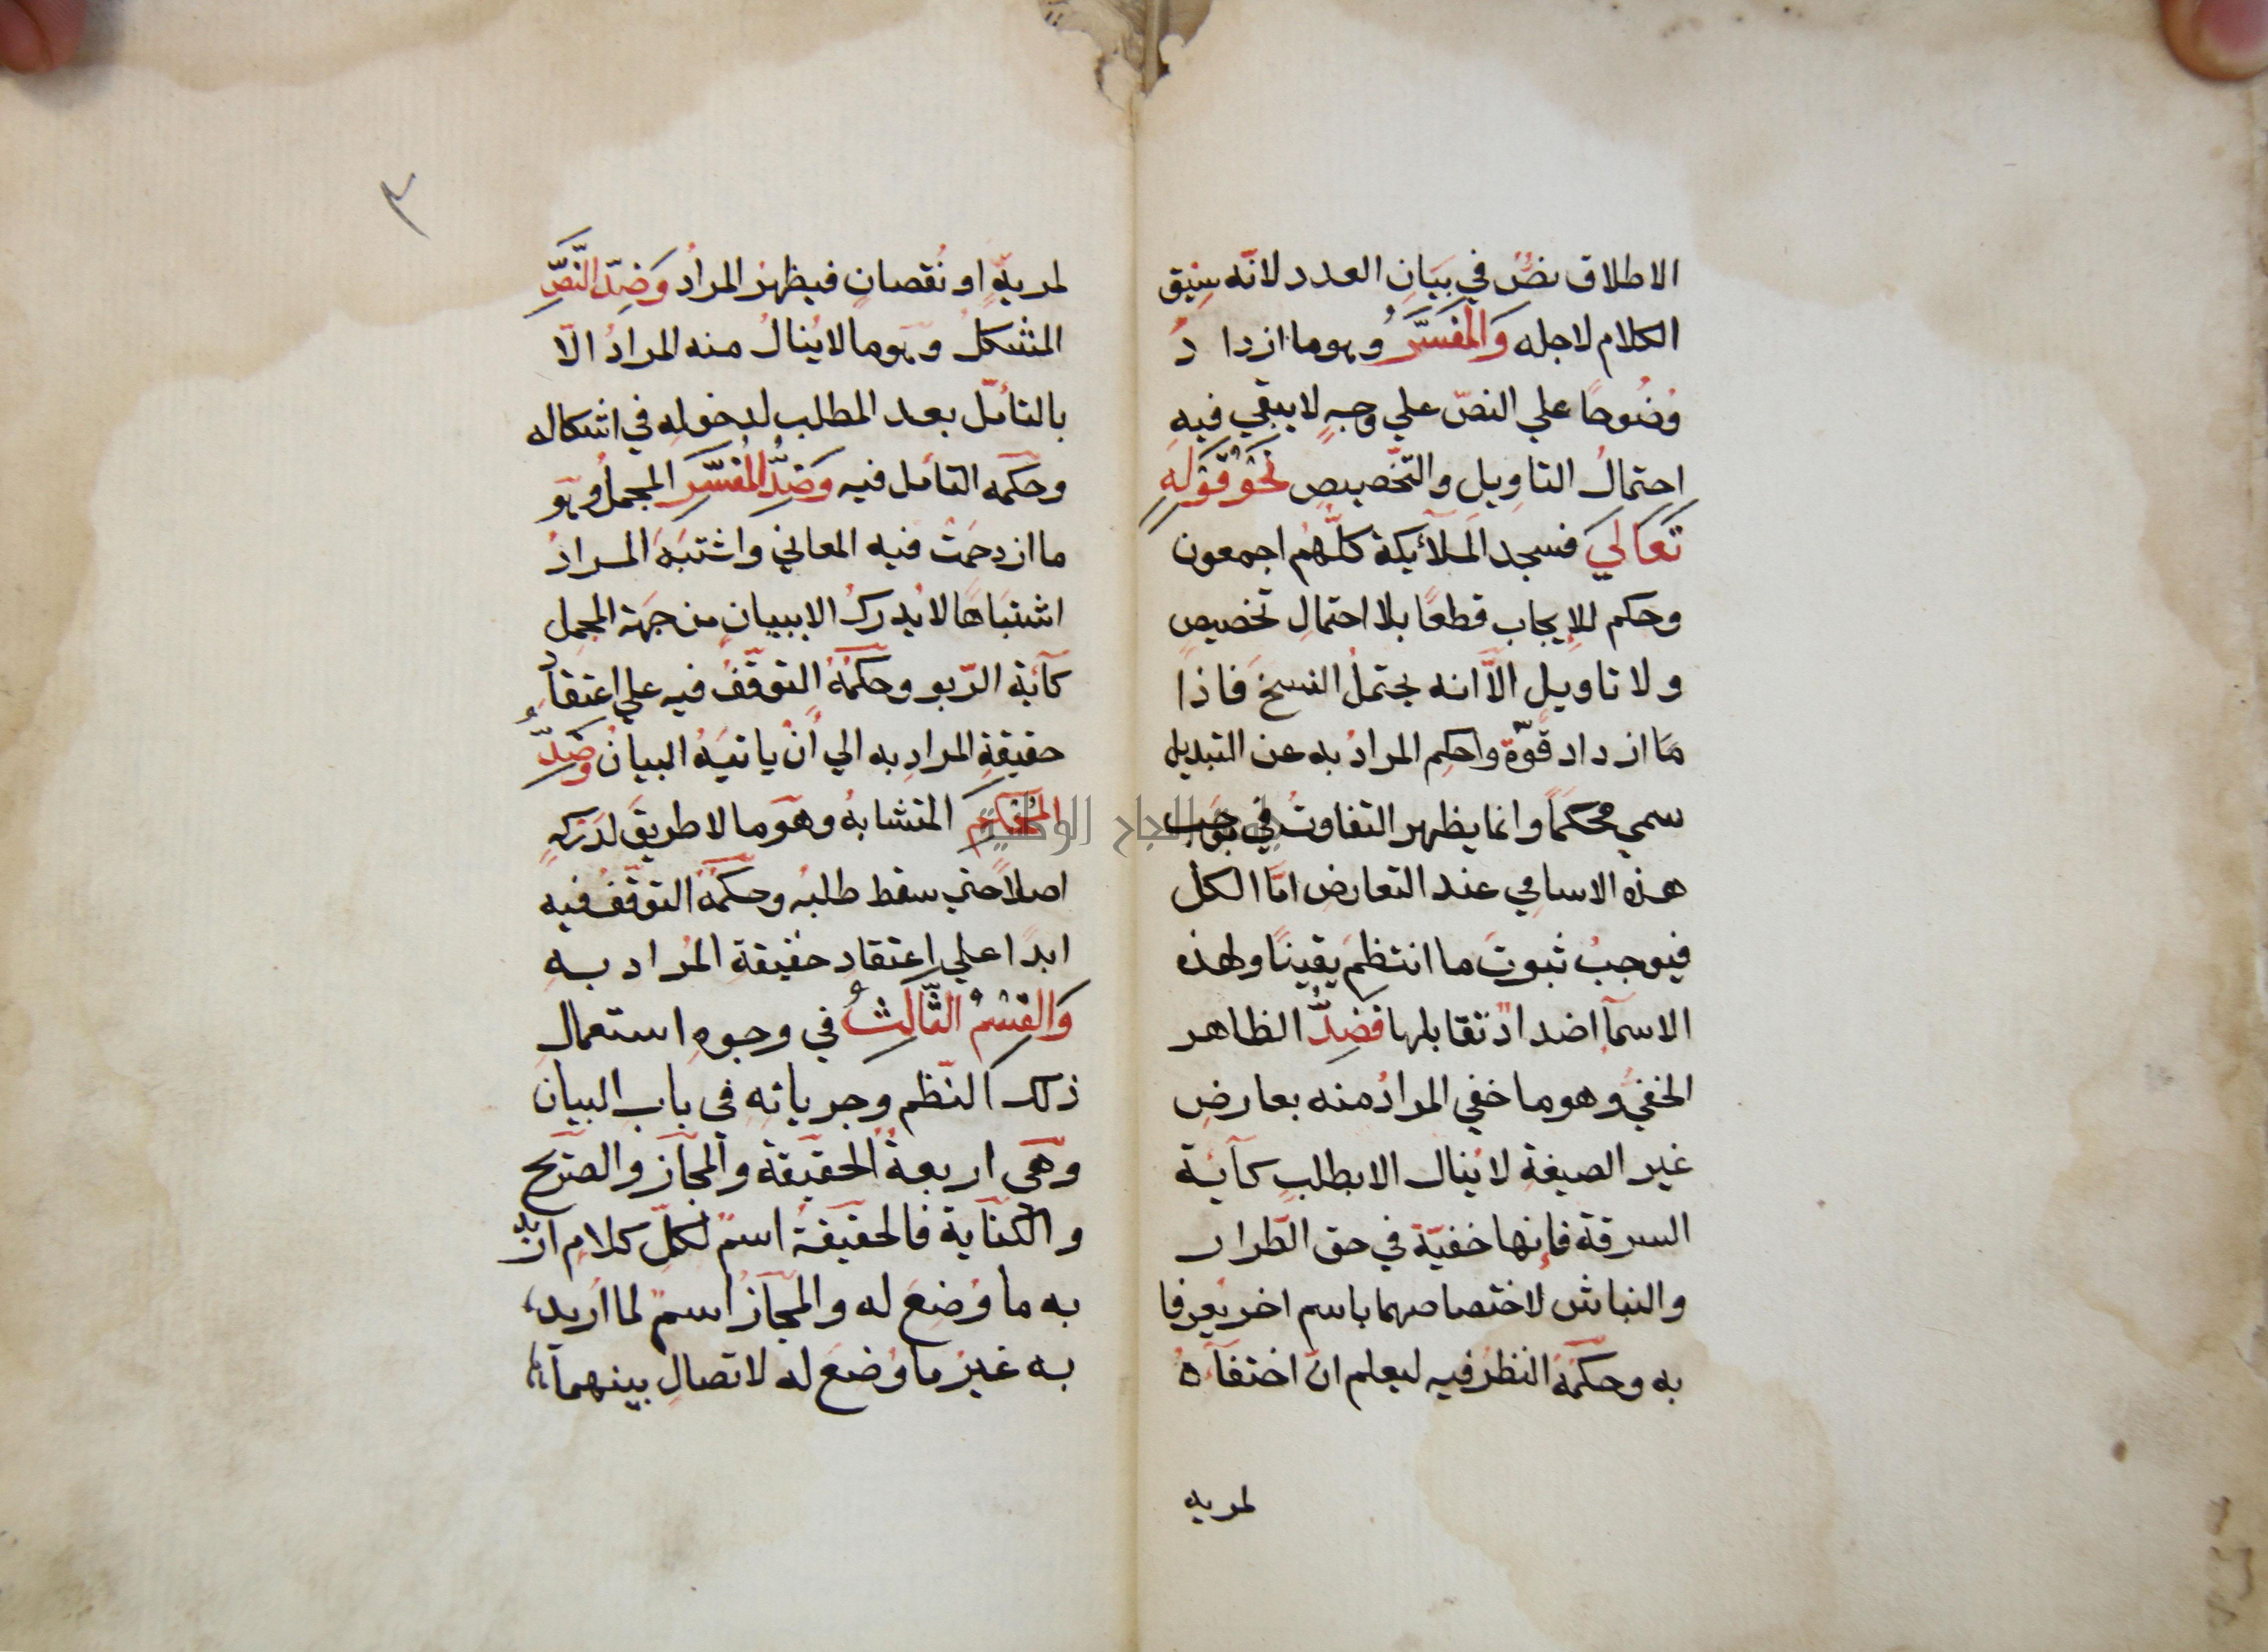 الاطلاق نصٌّ في بيَانِ العدد لانّه سِيق
الكلام لاجله وَالْمُفَسَّرُ وهو ما ازدا دُ
وُضُوحًا علي النصّ علي وجهٍ لا يبقي فيهِ
احتمالُ التاويلِ والتّخصيصِ نَحْوُ قَوْلِهِ
تَعَالَي فسجد الملآئكة كلّهُم اجمعون
وحكم للإيجاب قطعًا بلا احتمالِ تخصيصٍ
ولا تاويلٍ الّا انه يحتملُ النسخَ فاذا
مَا ازداد قوّةً واحكِم المرادُ به عن التبديل
سمي محكمًا وانما يظهر التفاوتُ في
هذه الاسامي عند التعارض امّا الكل
فيوجبُ ثبوتَ ما انتظمَ يقينًا ولهذه
الاسمآءِ اضدادٌ تقابلها فَضِدُّ الظاهر
الخفيُّ وهو ما خفي المرادُ منه بعارضٍ
غير الصيغةِ لا يُنال الا بطلبٍ كآية
السرقة فإنها خفيّة في حق الطّرار
والنباش لاختصاصهما باسم اخر يُعرفا
به وحكمُهُ النظرُ فيه ليعلم انّ اختفآءهُ
لمزيه
٢
لمزيةٍ او نُقصانٍ فيظهرُ المرادُ وَضِدُّ النَّصِّ
المشكلُ وهو ما لا يُنالُ منه المرادُ الّا
بالتأمّل بعد المطلب لدخوله في اشكاله
وحكمه التأمل فيه وَضِدُّ الْمُفَسَّرِ المجملُ وهو
ما ازدحمَتْ فيه المعاني واشتبَهَ المرادُ
اشتبَاهًا لا يُدركُ الا ببيانٍ من جهة المجمل
كآية الرّبو وحكمُهُ التوقّفُ فيه علي اعتقادِ
حقيقةِ المرادِ به الي أنْ ياتيَهُ البيانُ وَضِدُّ
الْمُحْكَمِ المتشابهُ وهو ما لا طريقَ لدَركِهِ
اصلًا حتي سقط طلبُه وحكمُهُ التوقّفُ فيه
ابدًا علي اعتقادِ حقيقةِ المُراد بهِ
وَالْقِسْمُ الثَّالِثُ في وجوهِ استعمالِ
ذلك النّظم وجرياتِهِ في بابِ البيان
وهي اربعةٌ الحقيقةُ والمجاز والصّريح
والكناية فالحقيقةُ اسمٌ لكلّ كلامٍ اريد
به ما وُضِعَ له والمجازُ اسمٌ لما اُريد
به غيرُ ما وُضعَ له لاتصالٍ بينهما